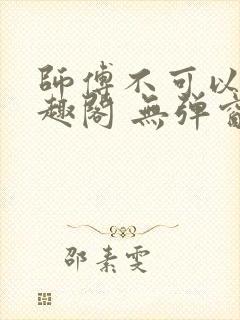 師傅不可以
趣閣 無彈窗
邵素雯